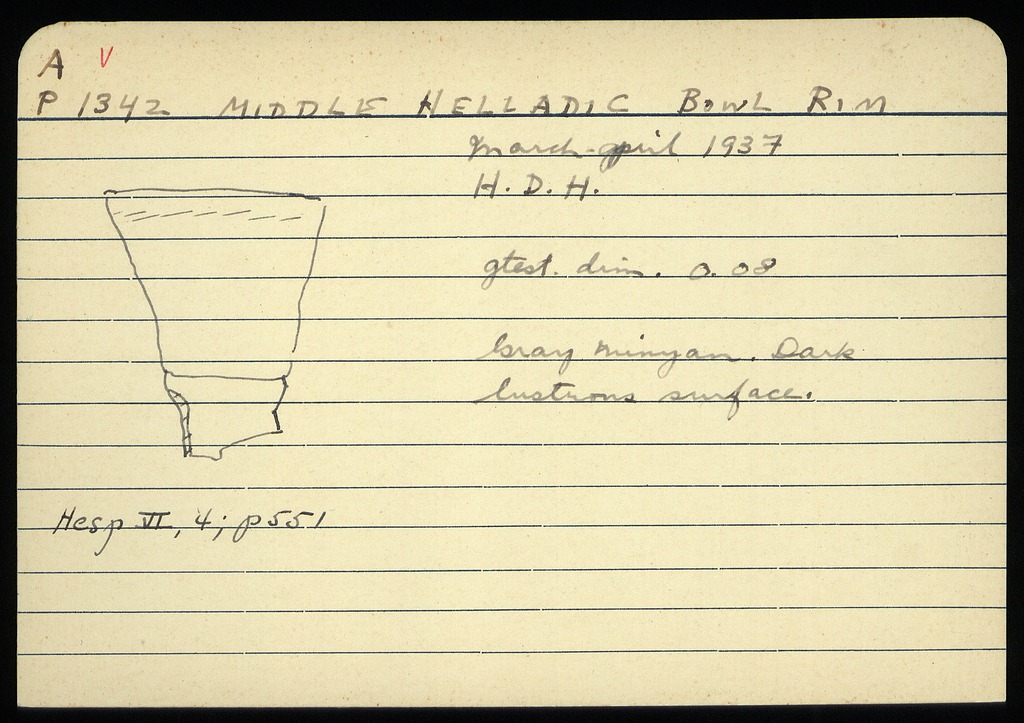 A V
P 1342 MIDDLE HELLADIC BOWL RIM
March-April 1937
H. D. H.
gtest. dim. 0.08
Gray Minyan. Dark
lustrous surface.
Hesp VI, 4; p 551